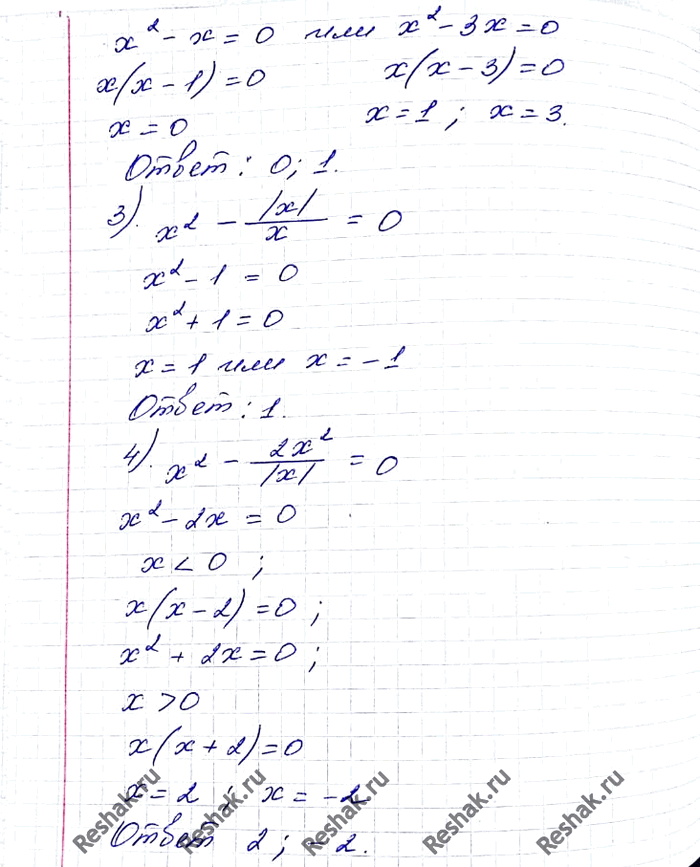 x² - x = 0 или x² - 3x = 0
x(x - 1) = 0 x(x - 3) = 0
x = 0 x = 1 ; x = 3.
Ответ: 0; 1.
3). x² - |x|/x = 0
x² - 1 = 0
x² + 1 = 0
x = 1 или x = -1
Ответ: 1.
4). x² - 2x²/|x| = 0
x² - 2x = 0
x < 0 ;
x(x - 2) = 0 ;
x² + 2x = 0 ;
x > 0
x(x + 2) = 0
x = 2 ; x = -2.
Ответ 2 ; -2.
Reshak.ru Reshak.ru Reshak.ru Reshak.ru Reshak.ru